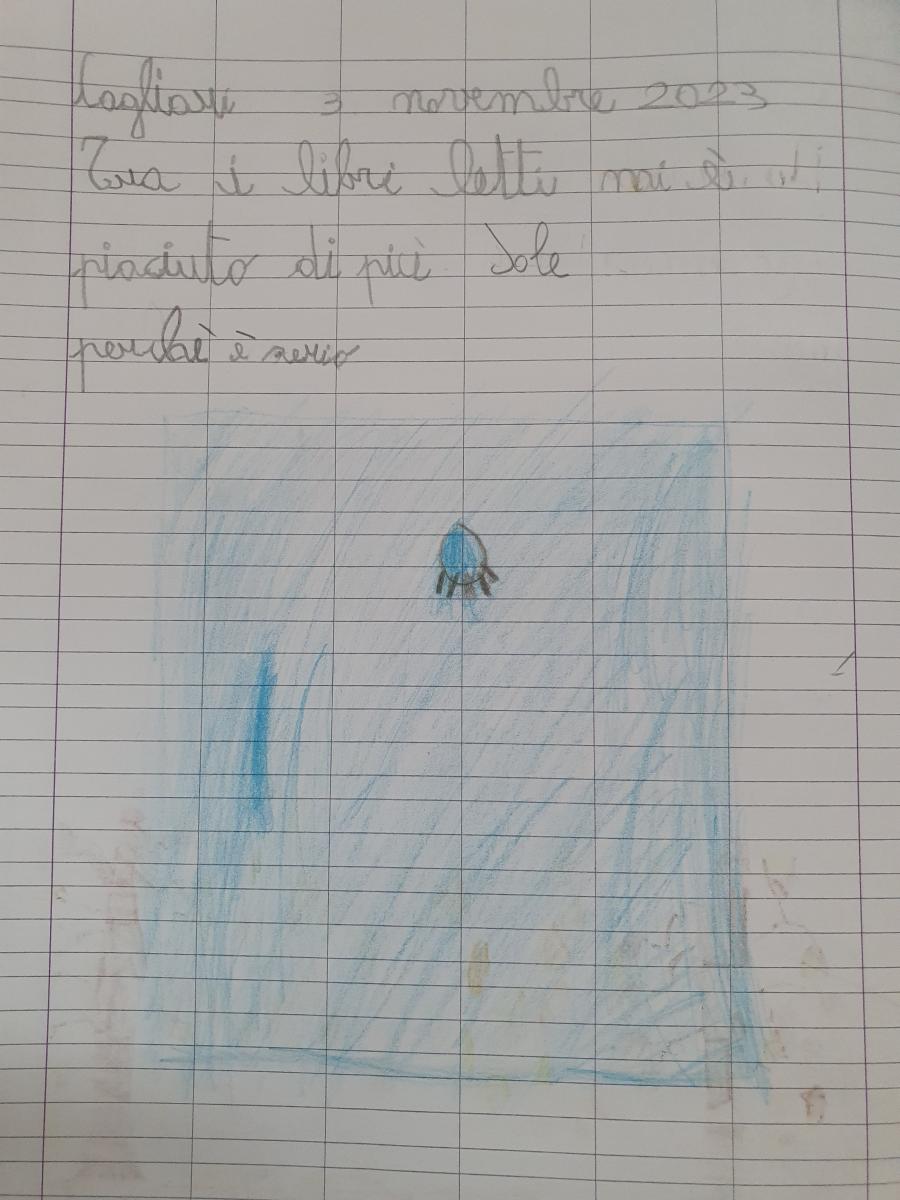 Cagliari 3 novembre 2023
Tra i libri letti mi è
piaciuto di più Sole
perchè è serio